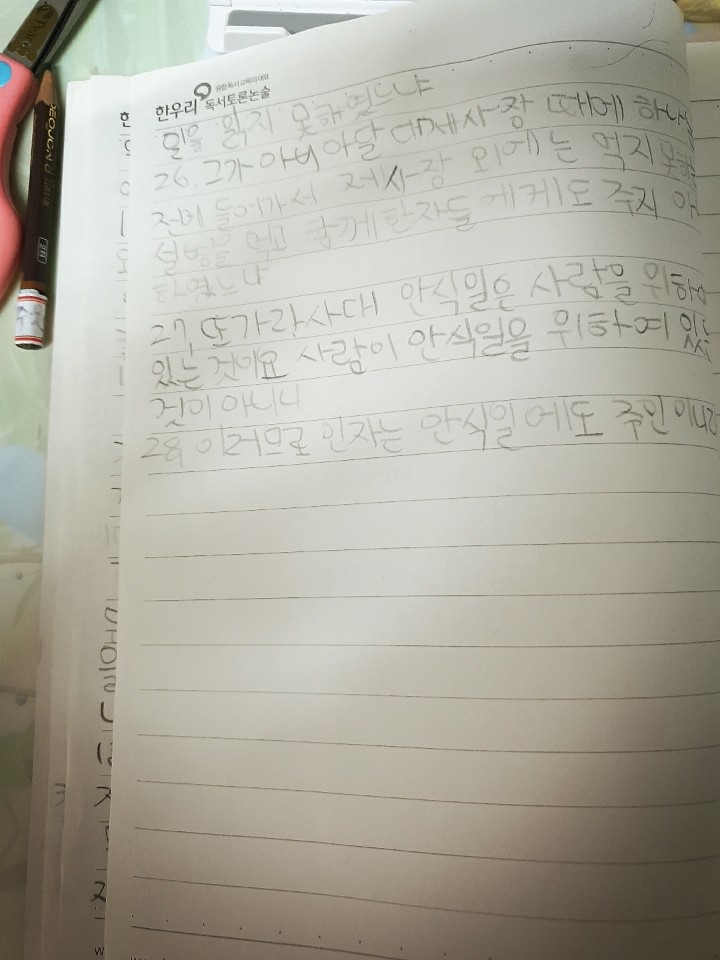 유합 독서 교육의 대표
한우리 독서토론논술
일을 읽지 못하였느냐
26. 그가 아비 아달 대제사장 때에 하나
전에 들어가서 제사장 외에는 먹지 못하
설병을 먹고 함께한자들에게도 주지 아
하였느냐
27. 또가라사대 안식일은 사람을 위하여
있는 것이요 사람이 안식일을 위하여 있는
것이 아니니
28 이러므로 인자는 안식일에도 주인이니라